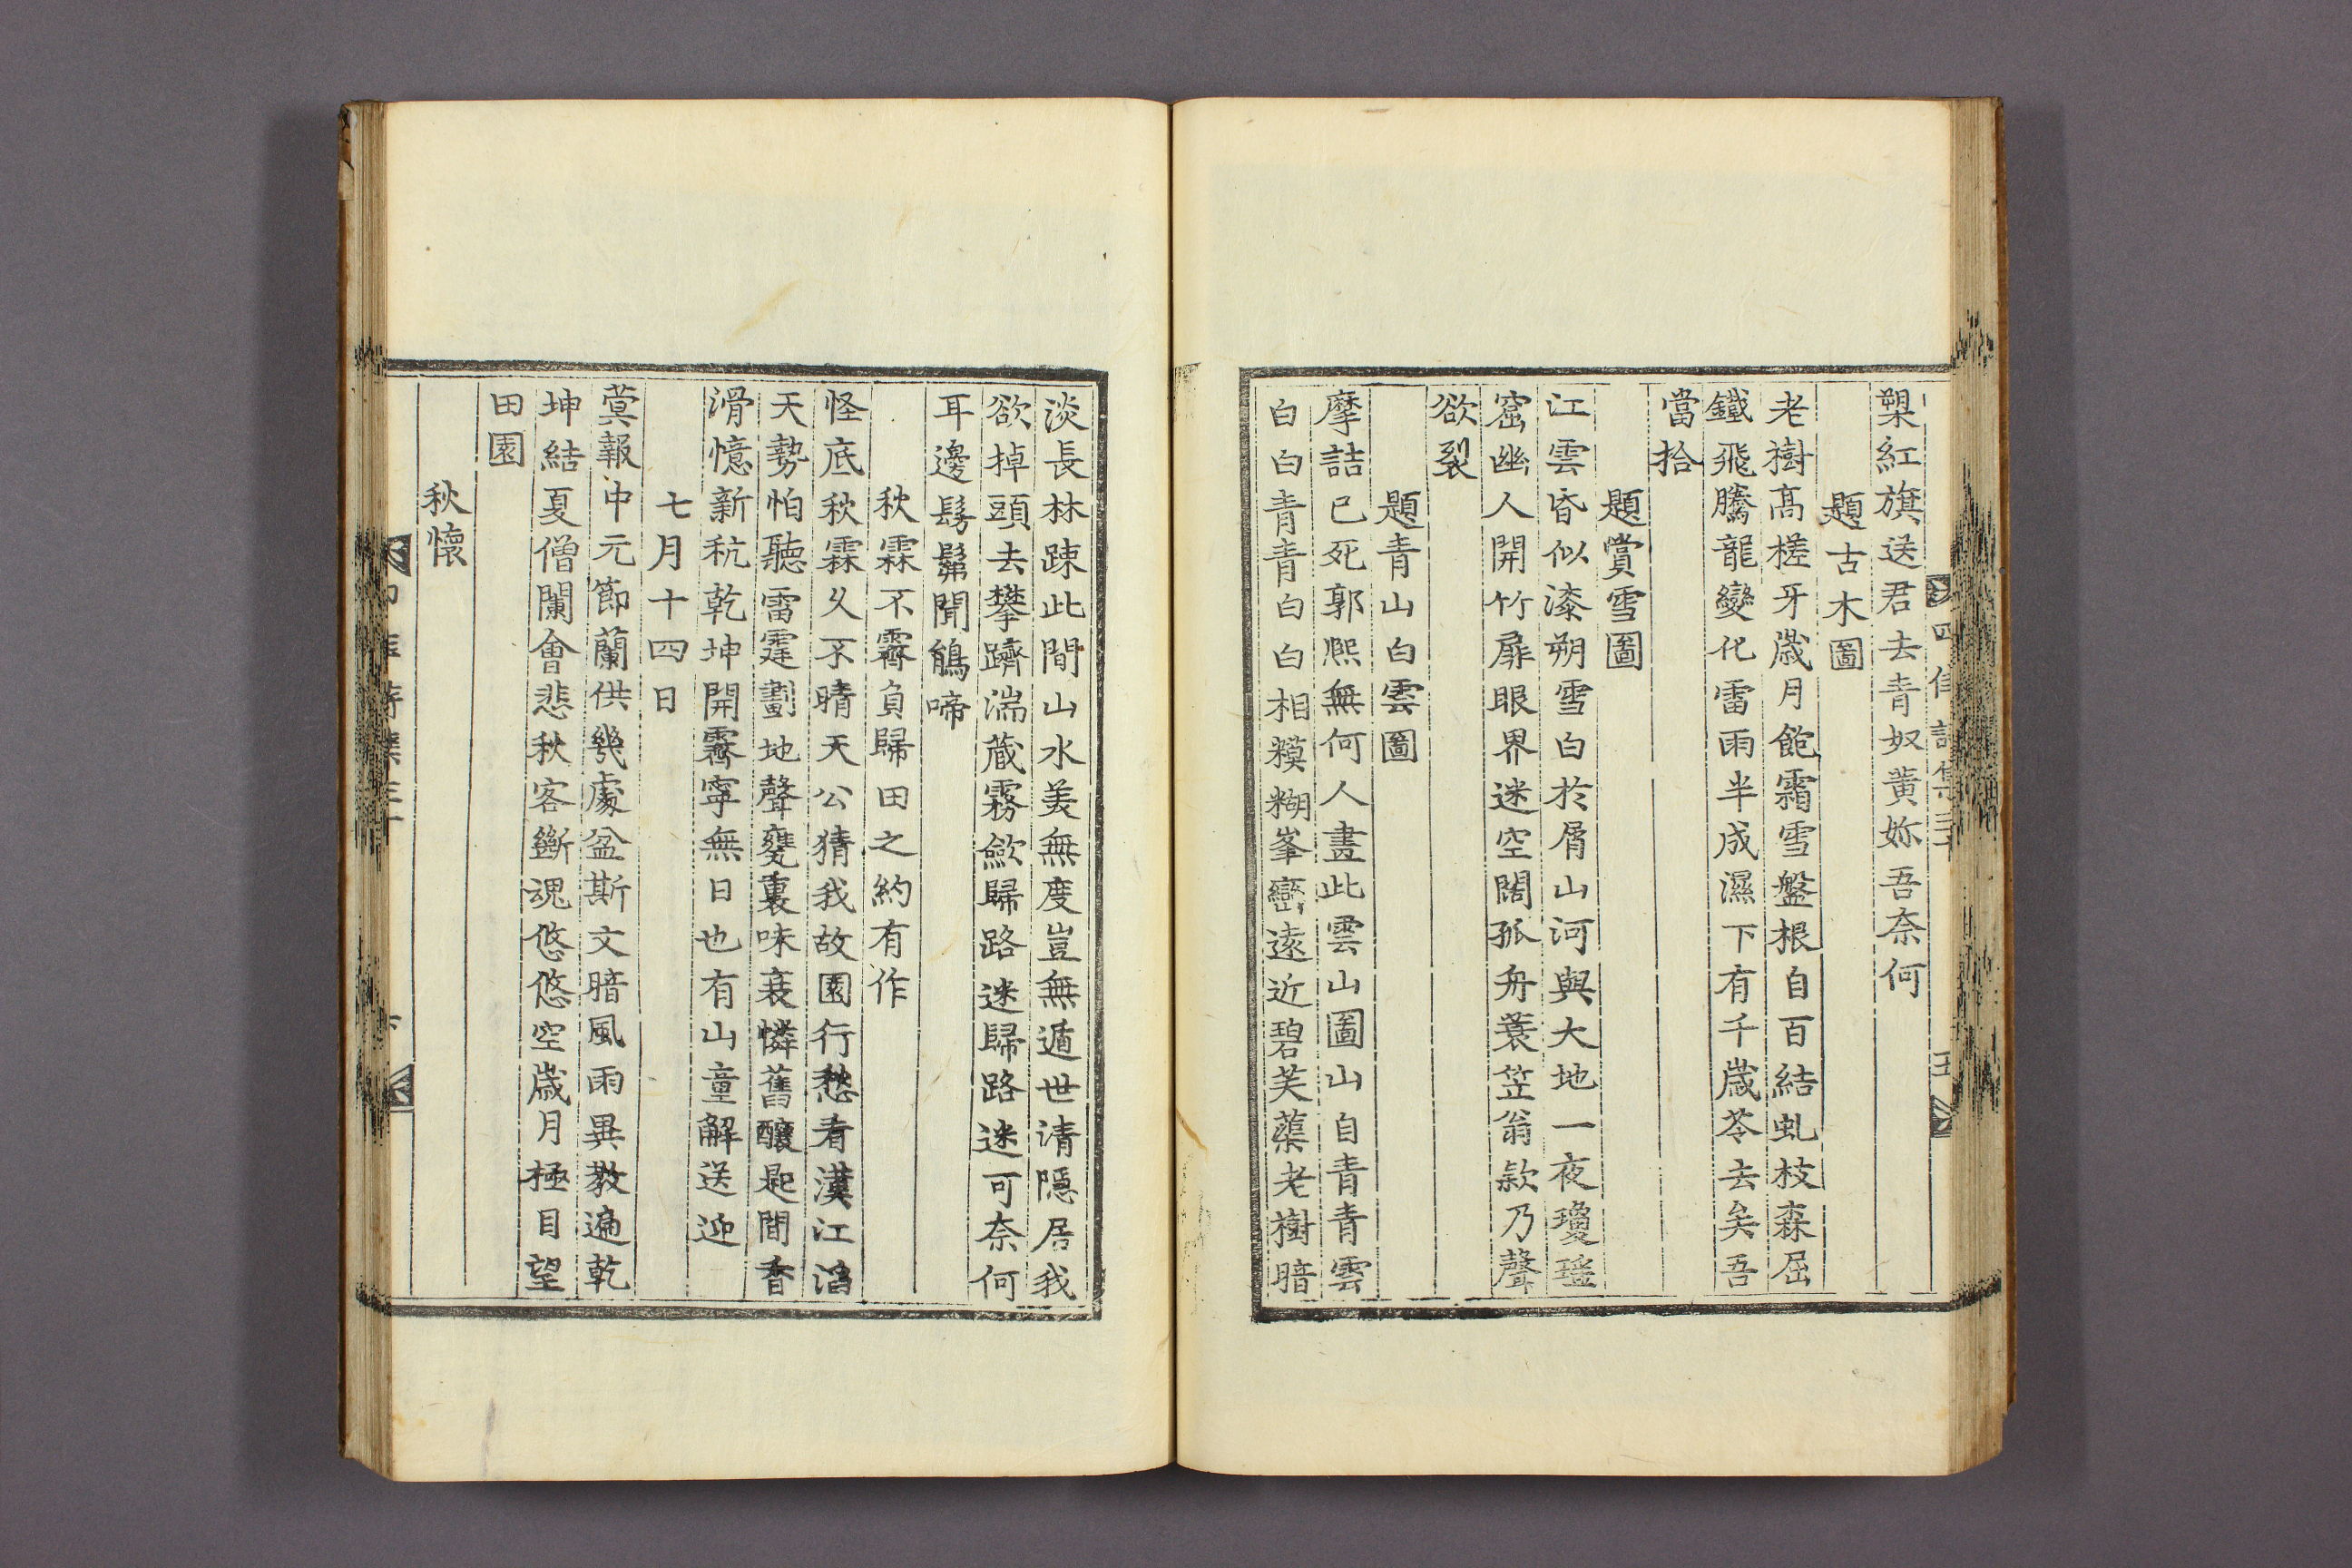 槊紅旗送君去青奴黃妳吾奈何
題古木圖
老樹髙槎牙歲月飽霜雪盤根自百結虬枝森屈
鐵飛騰龍變化雷雨半成濕下有千歲苓去矣吾
當拾
題賞雪圖
江雲昏似漆朔雪白於屑山河與大地一夜瓊瑤
窟幽人開竹扉眼界迷空闊孤舟蓑笠翁欸乃聲
欲裂
題青山白雲圖
摩詰已死郭熙無何人畫此雲山圖山自青青雲
白白青青白白相糢糊峯巒遠近碧芙蕖老樹暗
淡長林踈此間山水美無度豈無遁世清隱居我
欲掉頭去攀躋湍藏霧歛歸路迷歸路迷可奈何
耳邊髣髴聞鵑啼
秋霖不霽負歸田之約有作
怪底秋霖久不晴天公猜我故園行愁看漢江滔
天勢怕聽雷霆劃地聲甕裏味衰憐舊釀匙間香
滑憶新秔乾坤開霽寧無日也有山童解送迎
七月十四日
蓂報中元節蘭供幾處盆斯文暗風雨異教遍乾
坤結夏僧闌會悲秋客斷魂悠悠空歲月極目望
田園
秋懷